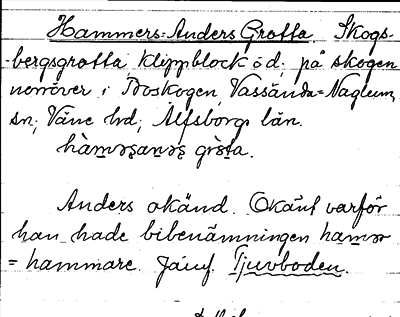 Hammers-Anders Grotta. Skogs-
-bergsgrotta klippblock o d; på skogen
norröver i Boskogen, Vassända-Naglum
sn; Väne hd; Älfsborgs län.
hàmərṣanəṣ
Anders okänd. Okänt varför
han hade bibenämningen hamər
= hammare. Jämf. Tjuvboden.